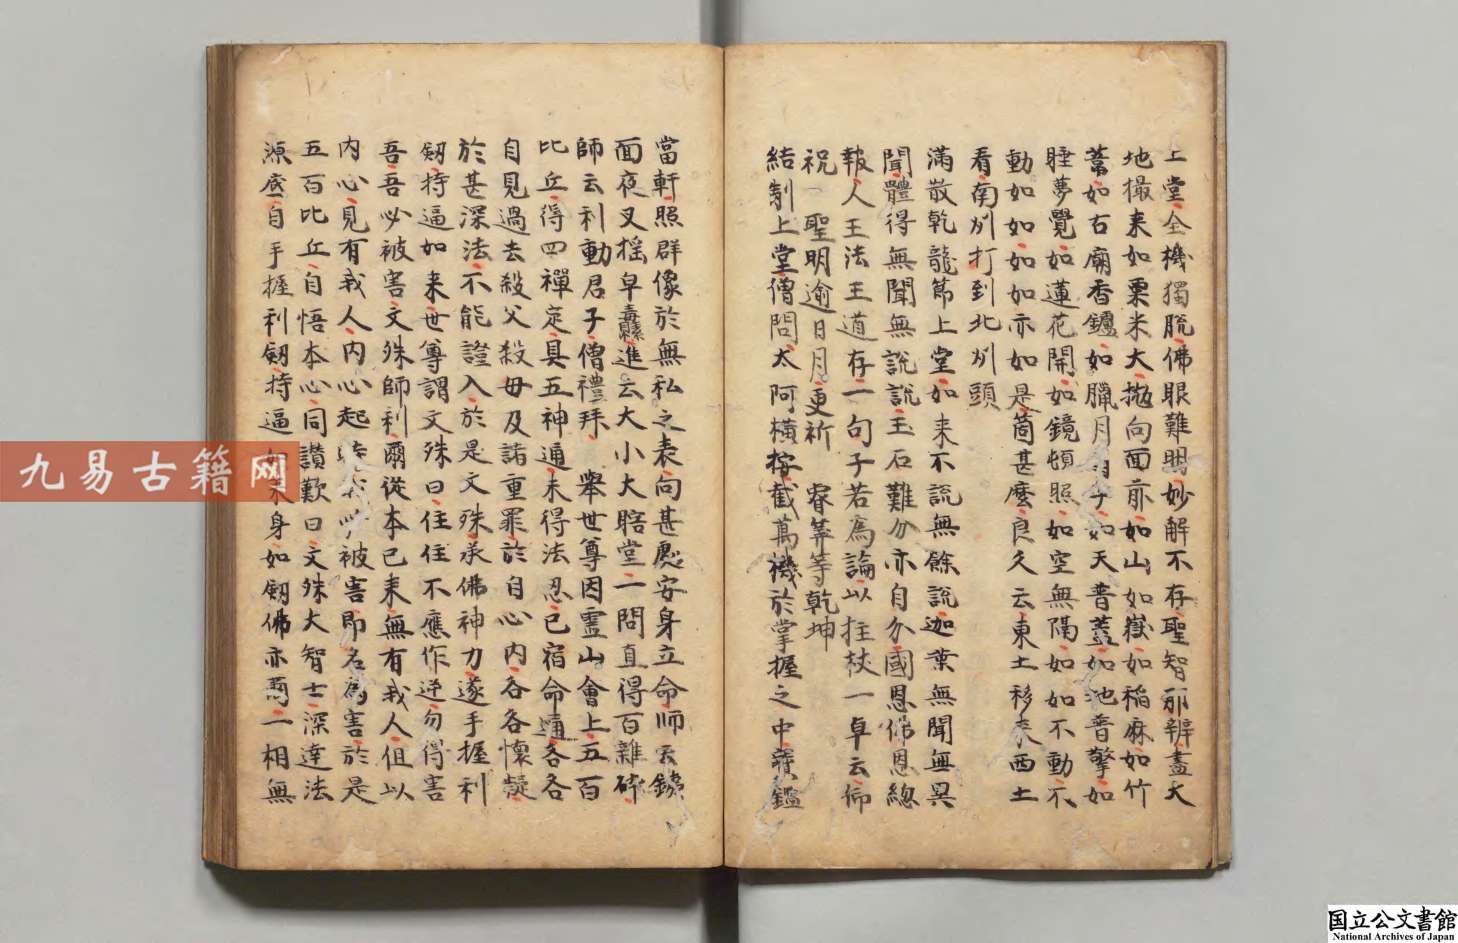 上堂全機獨脫佛眼難明妙解不存聖智那辨盡大
地撮来如粟米大拋向面前如山如嶽如稲麻如竹
葦如右廟香鑪如臘月扇子如天普蓋如地普擎如
睡夢覺如蓮花開如鏡頓照如空無隔如如不動不
動如如如如亦如是箇甚麼良久云東土移来西土
看南州打到北州頭
滿散乾龍節上堂如来不説無餘説迦葉無聞無異
聞體得無聞無説説玉石難分亦自分國恩佛恩緫
報人王法王道存一句子若為論以拄杖一卓云仰
祝一聖明逾日月更祈睿筭等乾坤
結制上堂僧問太阿橫按截萬機於掌握之中寶鑑
當軒照群像於無私之表向甚處安身立命师云鐃
面夜叉揺皁纛進云大小大瞎堂一問直得百雜碎
師云利動君子僧禮拜舉世尊因霊山會上五百
比丘得四禪定具五神通未得法忍已宿命通各各
自見過去殺父殺母及諸重罪於自心内各各懷疑
於甚深法不能證入於是文殊承佛神力遂手握利
劔持逼如来世尊謂文殊曰住住不應作逆勿得害
吾吾必被害文殊師利爾從本已来無有我人但以
内心見有我人内心起時我必被害即名為害於是
五百比丘自悟本心同讃歎曰文殊大智士深達法
源底自手握利劔持逼如来身如劔佛亦爾一相無
九易古籍网
国立公文書館
National Archives of Japan